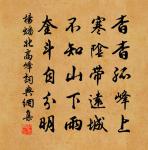 杳杳孤峰上
寒陰帶遠城
不知山下雨
奎斗自分明
楊蟠北高峰詞典網集